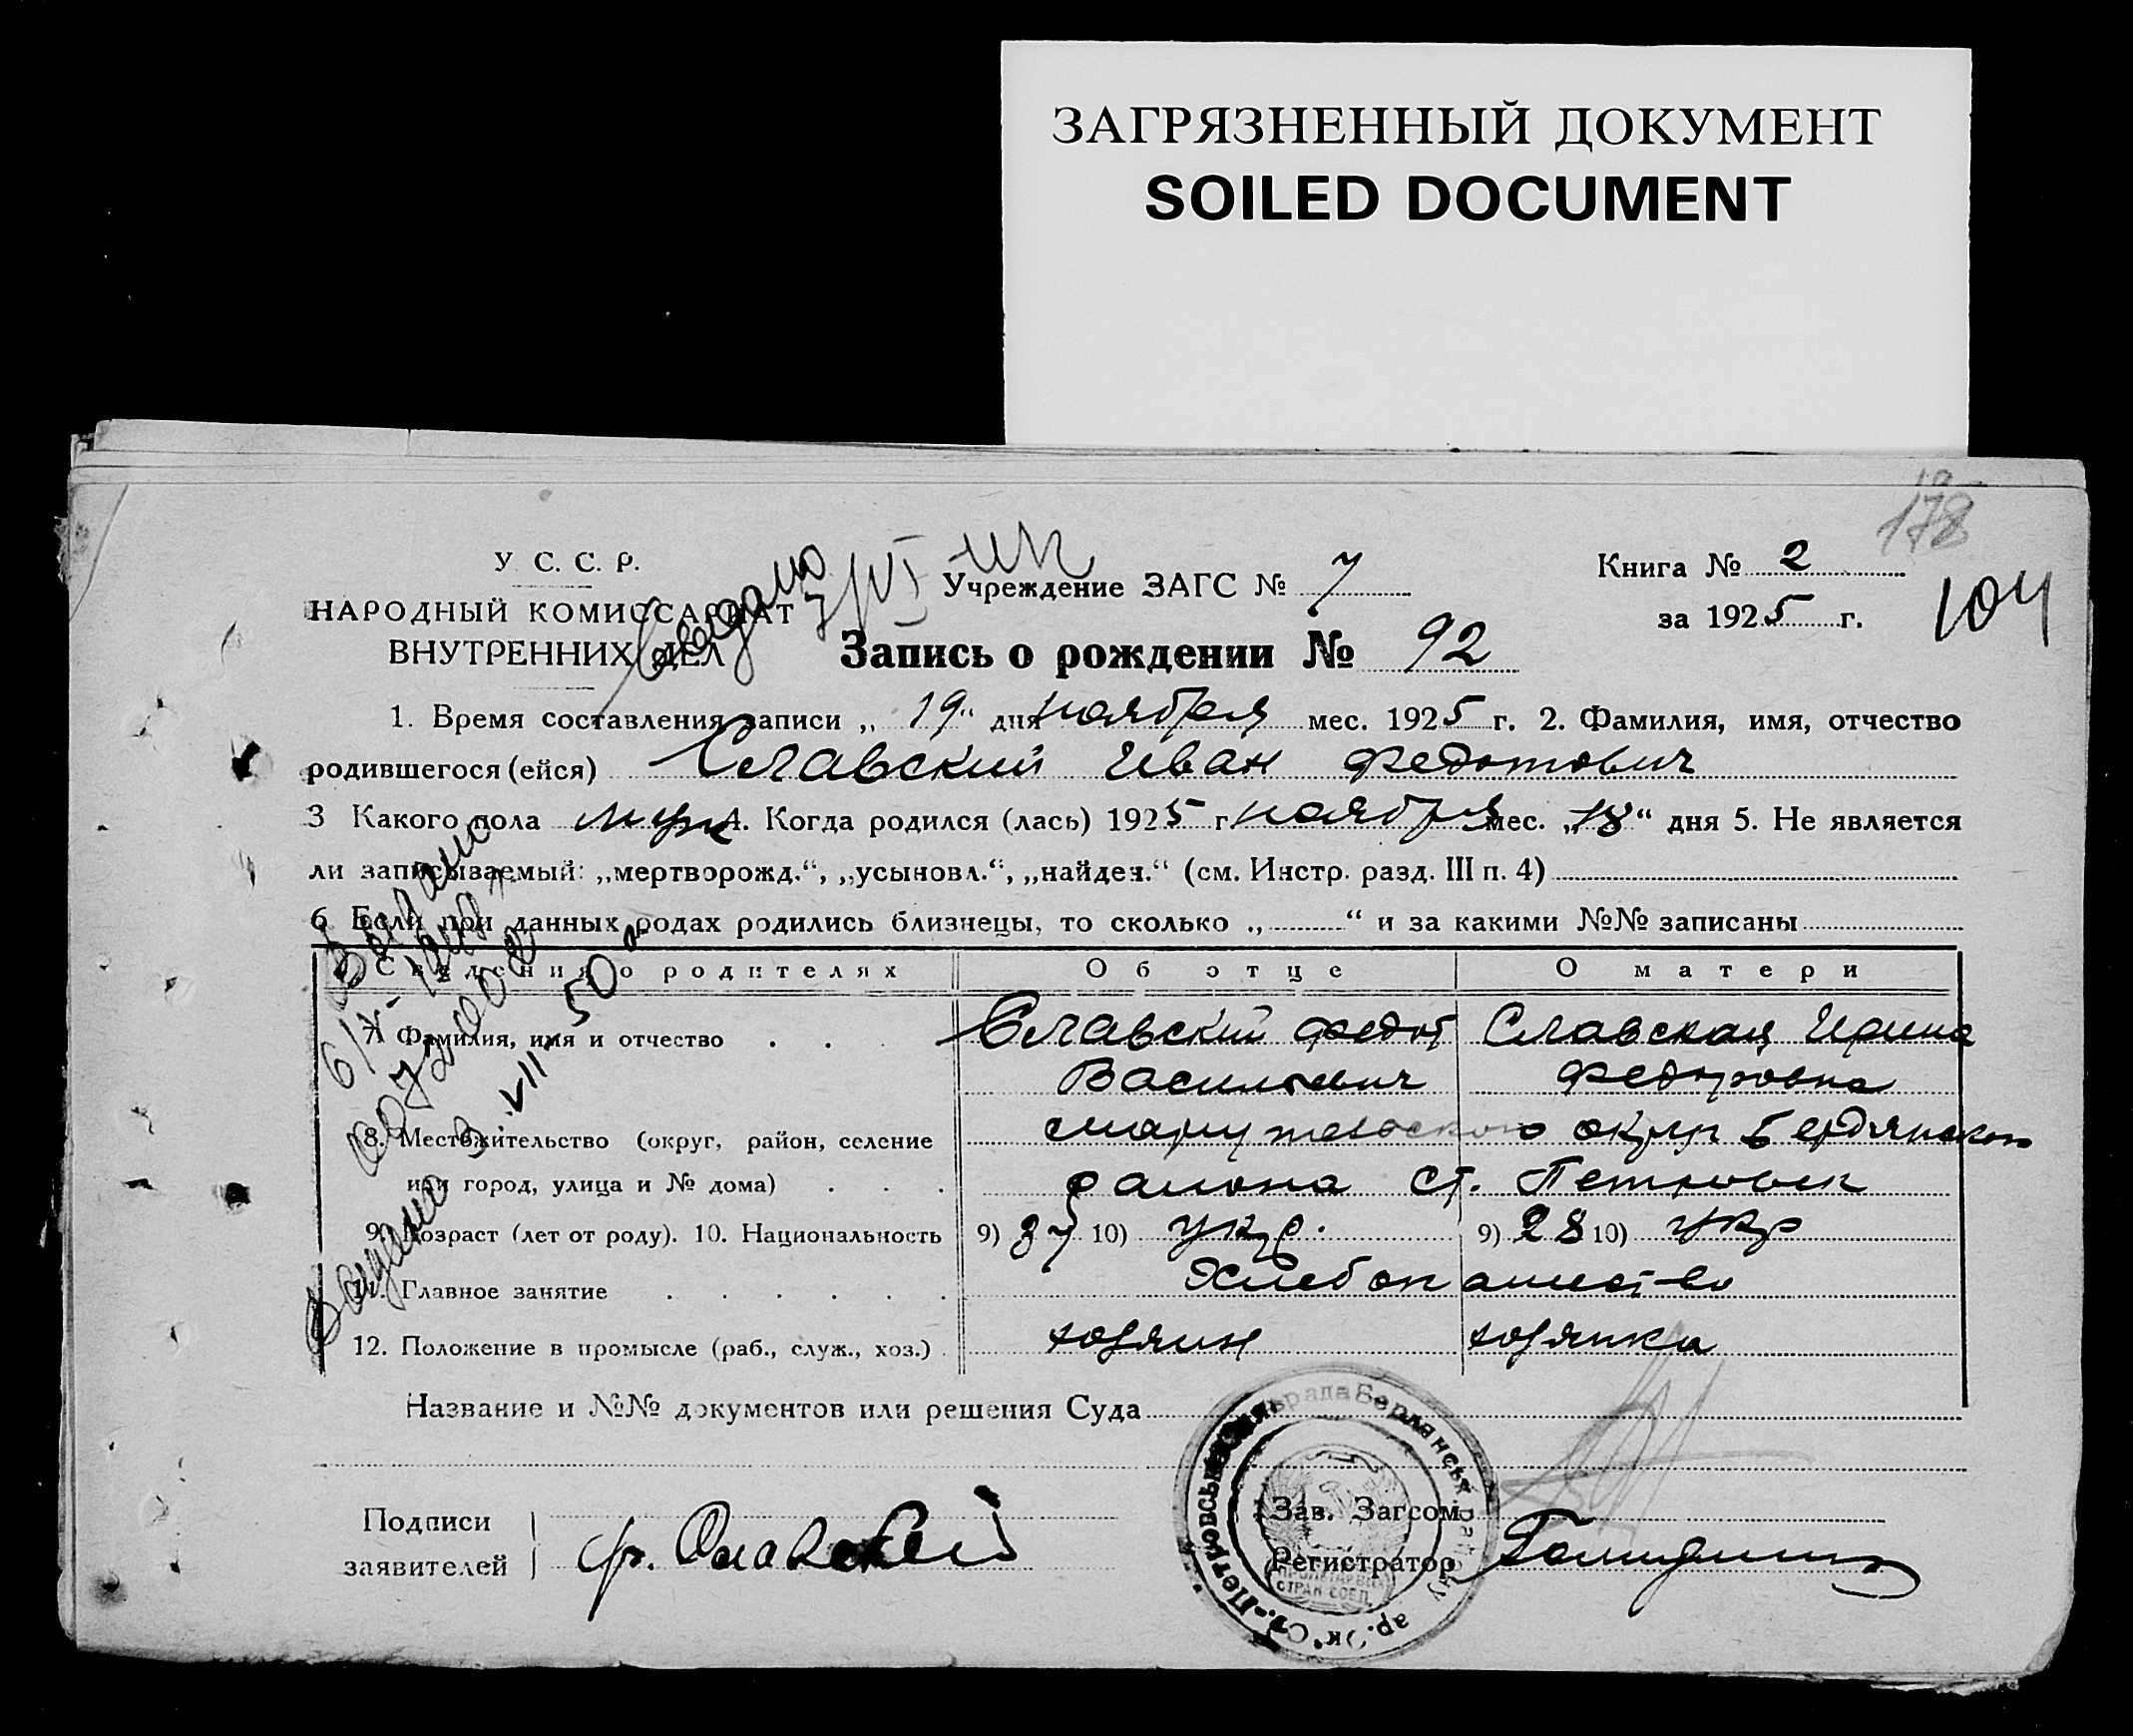 ЗАГРЯЗНЕННЫЙ ДОКУМЕНТ
SOILED DOCUMENT
178
104
У. С. С. Р.
НАРОДНЫЙ КОМИССАРИАТ
ВНУТРЕННИХ ДЕЛ
Учреждение ЗАГС № 7
Книга № 2
за 1925 г.
Запись о рождении № 92
1. Время составления записи „ 19 “ дня ноября мес. 1925 г. 2. Фамилия, имя, отчество
родившегося (ейся) Славский Иван Федотович
3 Какого пола муж 4. Когда родился (лась) 1925 г. ноября мес. „18“ дня 5. Не является
ли записываемый: „мертворожд.“, „усыновл.“, „найден.“ (см. Инстр. разд. III п. 4)
6 Если при данных родах родились близнецы, то сколько „ “ и за какими №№ записаны
Сведения о родителях Об отце О матери
7. Фамилия, имя и отчество Славский Федот Славская Ирина
Василиевич Федоровна
8. Местожительство (округ, район, селение округ Бердянского
или город, улица и № дома) района Ст. Петровск
9. Возраст (лет от роду). 10. Национальность 9) 37 10) укр. 9) 28 10) укр
11. Главное занятие Хлебопашество
12. Положение в промысле (раб., служ., хоз.) хозяин хозяйка
Название и №№ документов или решения Суда
Подписи
заявителей Ф. Славский
Зав. Загсом
Регистратор
Ст.-Петровська сільрада Бердянськ